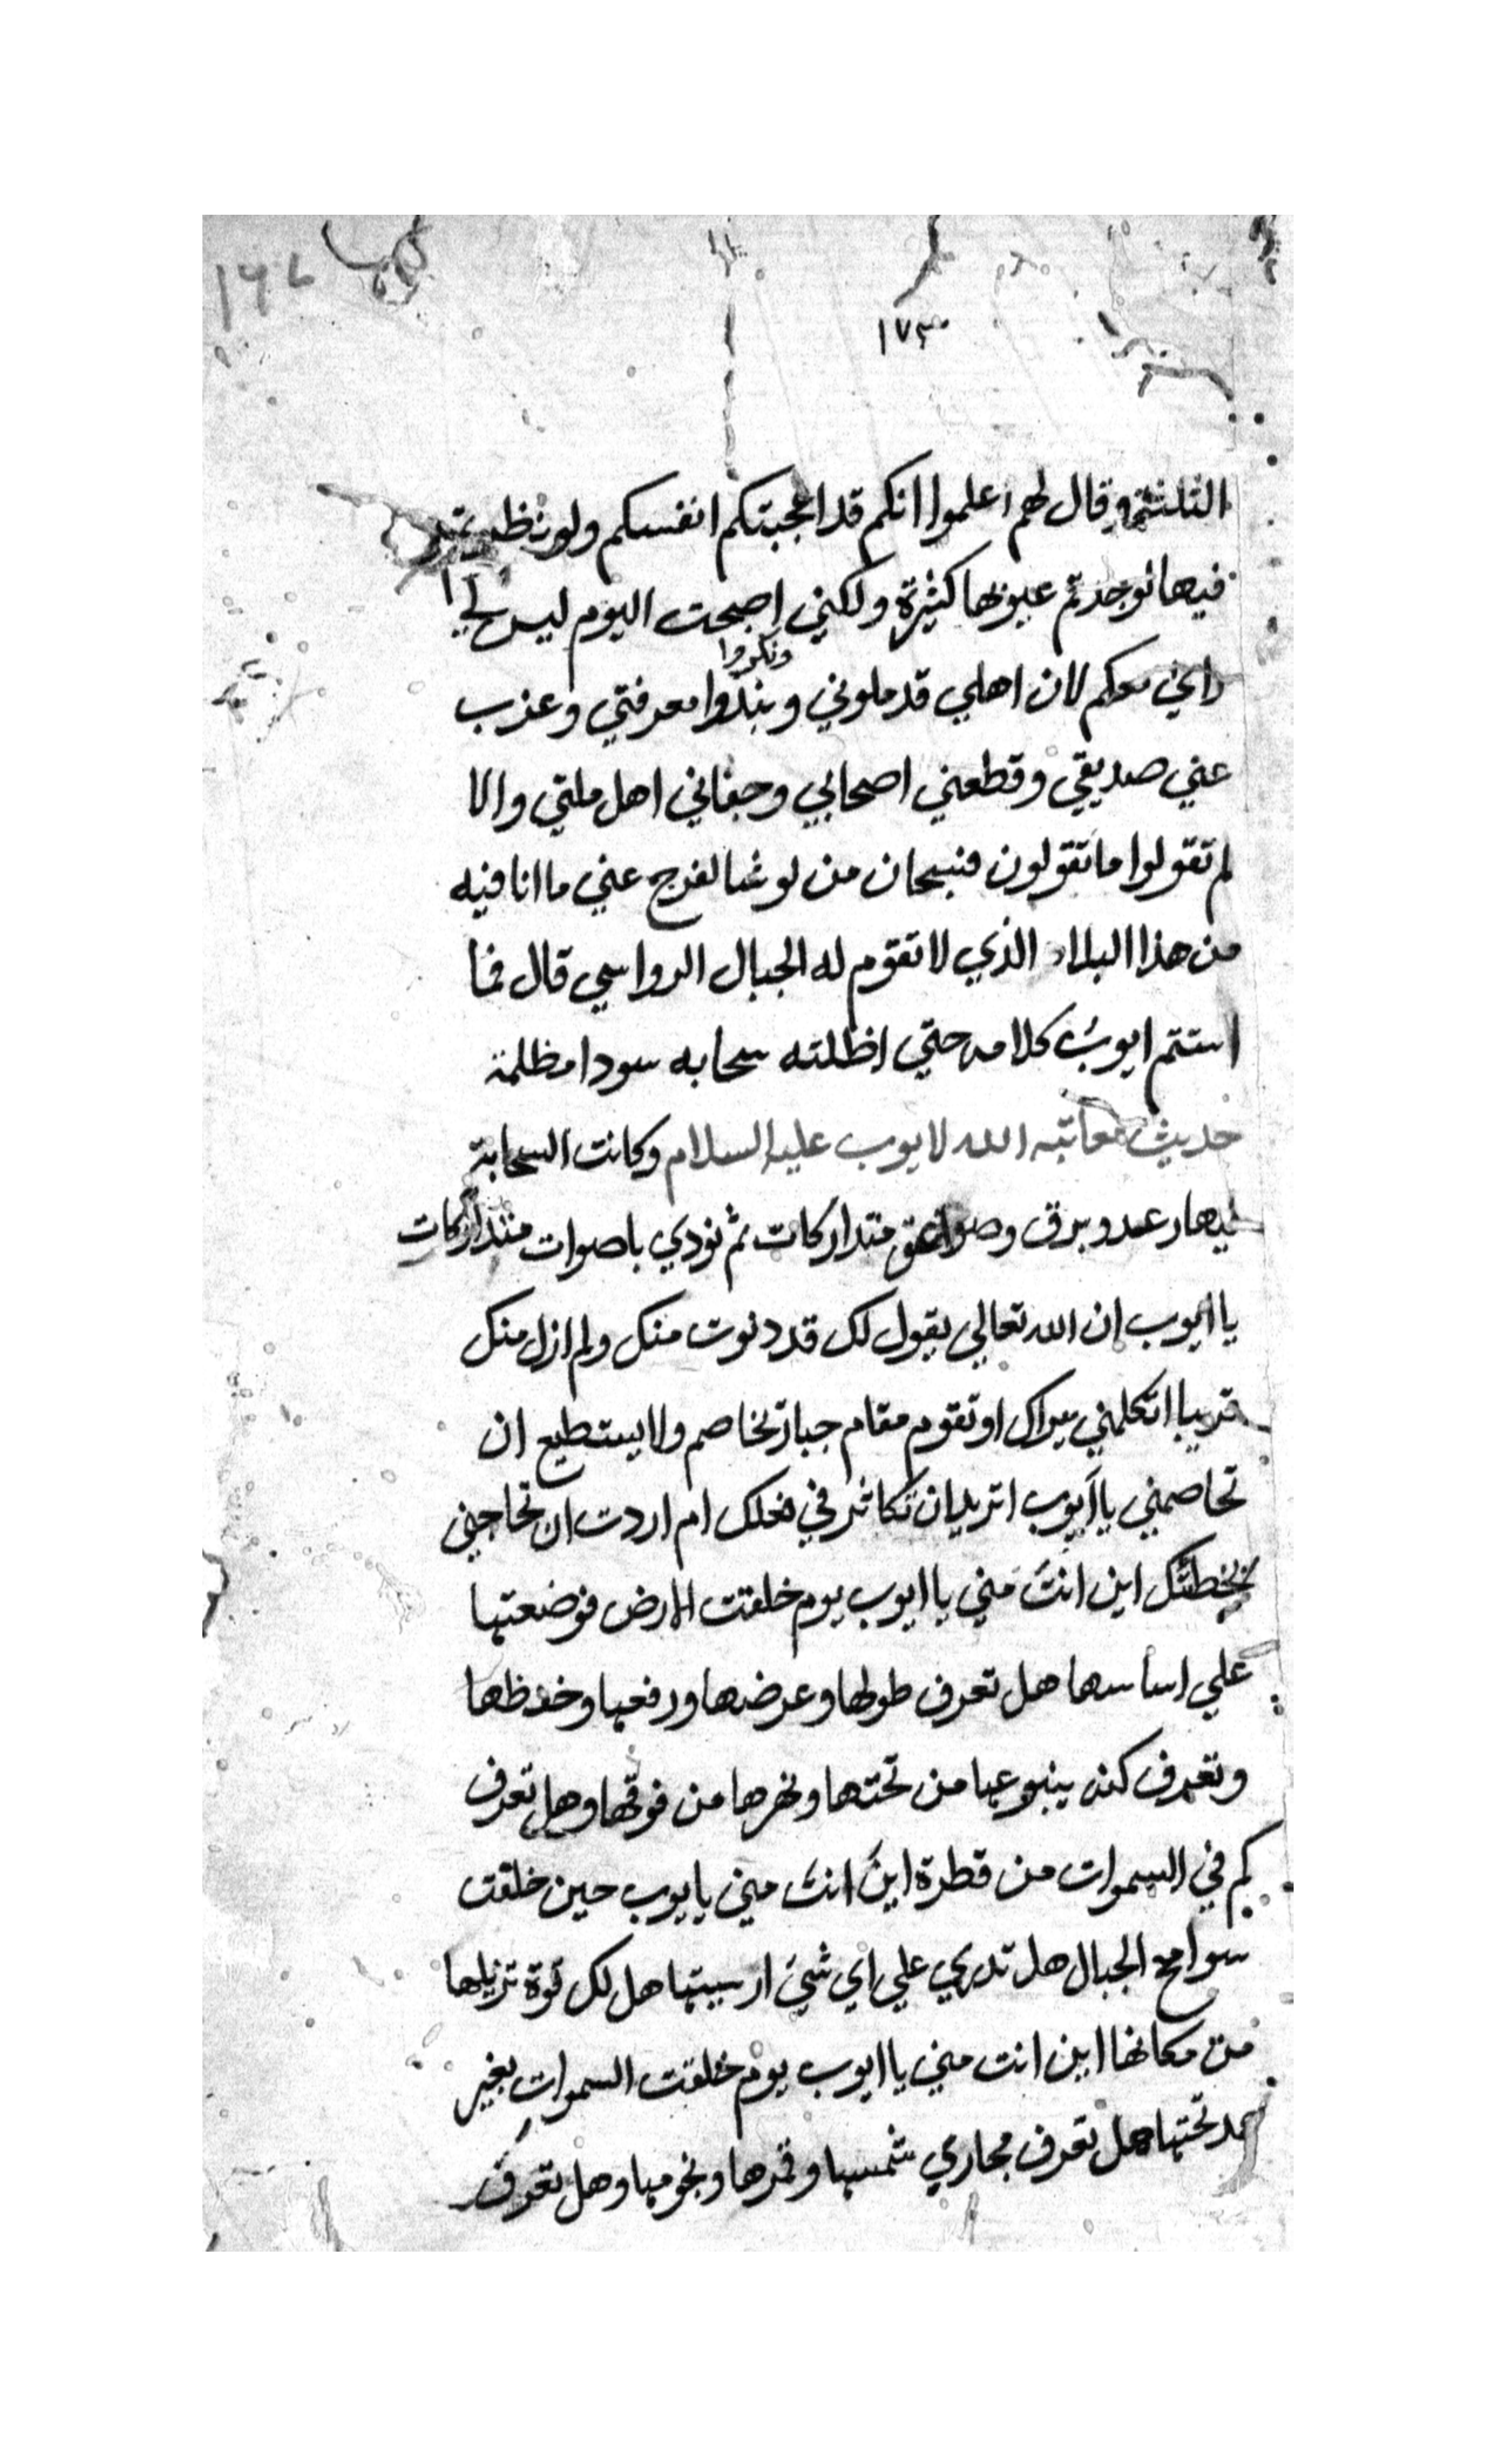 ١٧٣
الثلثة وقال لهم اعلموا انكم قد اعجبتكم انفسكم ولو نظرتم
فيها لوجدتم عيوبها كثيرة ولكني اصبحت اليوم ليس لي
راي معكم لان اهلي قد ملوني وبندوا معرفتي وعزب
ونكروا
عني صديقي وقطعني اصحابي وجفاني اهل ملتي والا
لم تقولوا ما تقولون فسبحان من لو شا لفرج عني ما انا فيه
من هذا البلاء الذي لا تقوم له الجبال الرواسي قال فما
استتم ايوب كلامه حتي اظلته سحابه سودا مظلمة
حديث معاتبه الله لايوب عليه السلام وكانت السحابة
فيها رعد وبرق وصواعق متداركات ثم نودي باصوات متداركات
يا ايوب ان الله تعالي يقول لك قد دنوت منك ولم ازل منك
قريبا اتكلمني بيراك او تقوم مقام جبار تخاصم ولا يستطيع ان
تخاصمني يا ايوب اتريد ان تكاثر في فعلك ام اردت ان تحاجني
بخطئك اين انت مني يا ايوب يوم خلقت الارض فوضعتها
علي اساسها هل تعرف طولها وعرضها ورفعها وخفظها
وتعرف كنه ينبوعها من تحتها ونهرها من فوقها وهل تعرف
كم في السموات من قطرة اين انت مني يايوب حين خلقت
سوامخ الجبال هل تدري علي اي شي ارسيتها هل لك قوة تزيلها
من مكانها اين انت مني يا ايوب يوم خلقت السموات بغير
عمد تحتها هل تعرف مجاري شمسها وقمرها ونجومها وهل تعرف